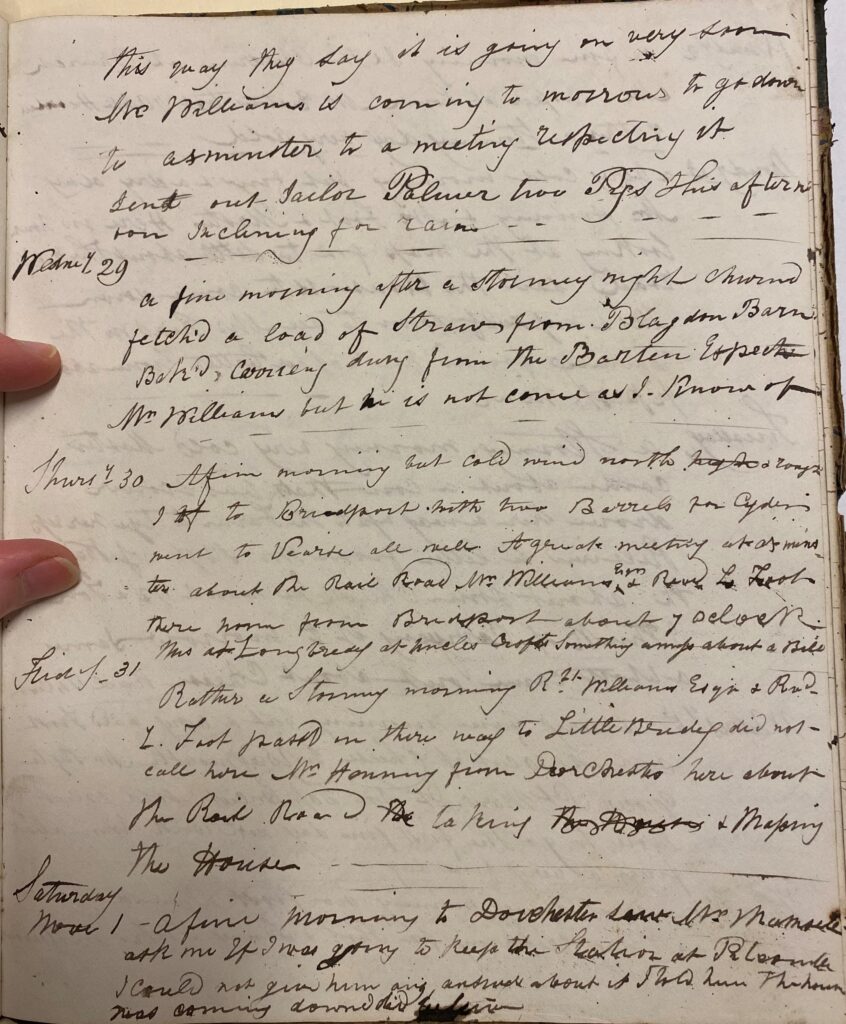 this way they say it is going on very soon
Mr Williams is coming to morrow to go down
to axminster to a meeting respecting it
Sent out Tailor Palmer two Pigs this aftern
oon Inclining for rain
Wednesy 29
a fine morning after a Stormey night
fetch'd a load of Straw from Blagdon Barn
Bak'd, Carrieng dung from the Barten Expect
Mr Williams but he is not come as I Know of
Thursy 30 A fine morning but cold wind north & rough
I to Bridport with two Barrels for Cyder
went to Vearse all well A great meeting at axmins-
ter about the Rail Road Mr Williams Esqr & Revd L Foot
there home from Bridport about 7 oclock
This at Longbredy at Uncles Crofts Something amiss about a Bill
Friday 31
Rather a Stormy morning Rt Williams Esqr & Revd
L. Foot pass'd in there way to Little Bredey did not
call here Mr Honning from Dorchester here about
the Rail Road the taking & Maping
the House
Saturday
Novr 1 - a fine morning to Dorchester saw Mr
ask me If I was going to keep the Station at
I could not give him any answer about it I told him The house
was coming down